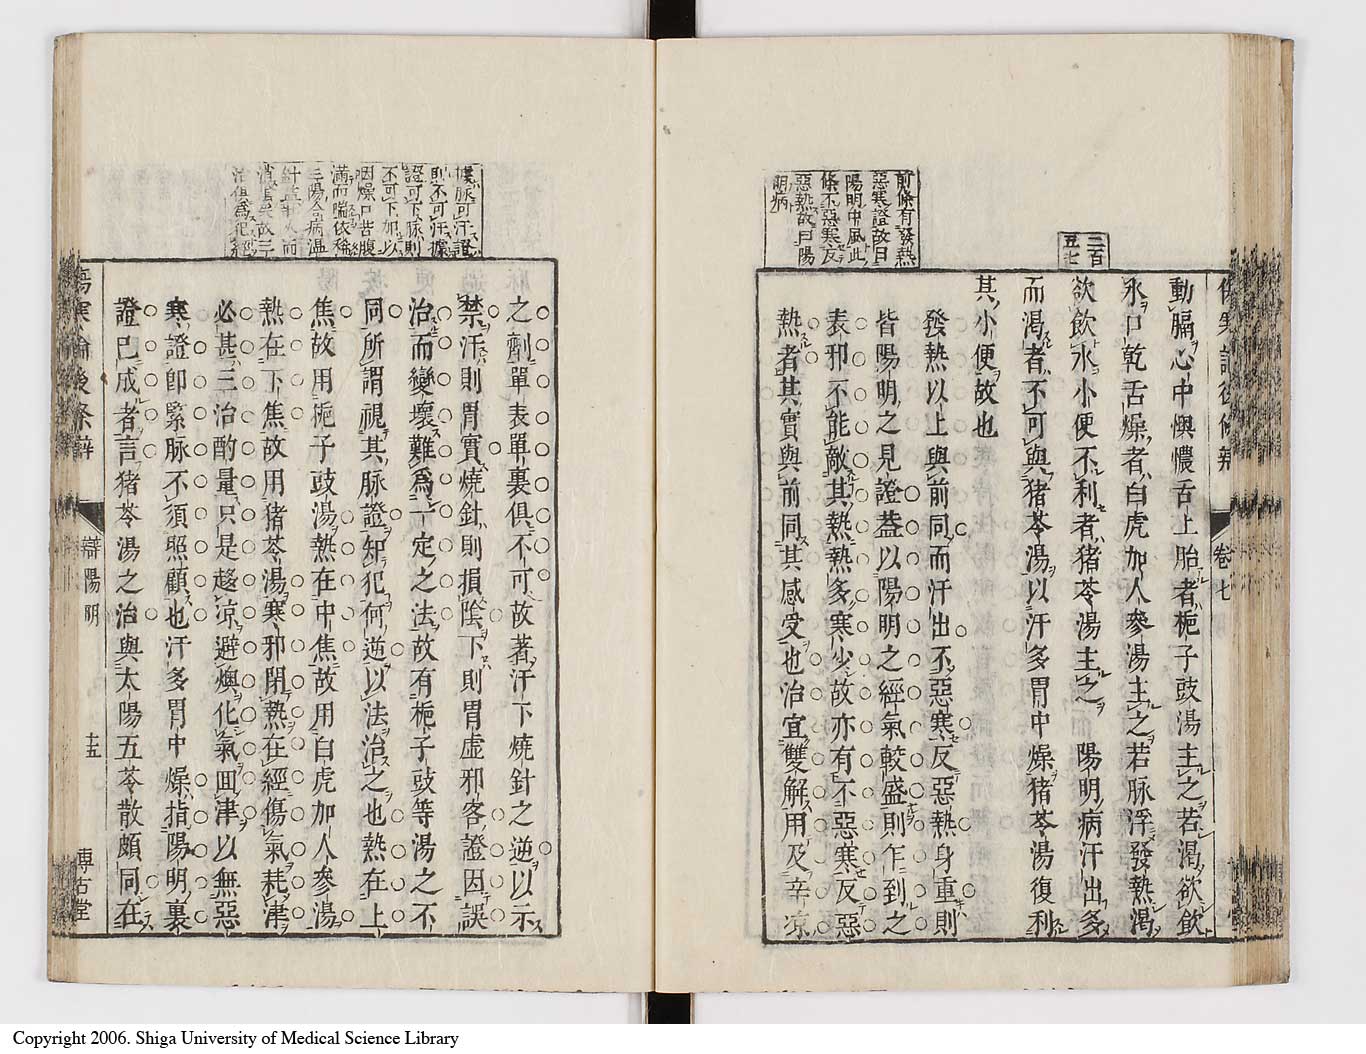 前條有發熱
惡寒證故曰
陽明中風此
條不惡寒反
惡熱故曰陽
明病
二百
五七
動膈心中懊憹舌上胎者梔子豉湯主之若渴欲飲
水口乾舌燥者白虎加人參湯主之若脉浮發熱渴
欲飲水小便不利者猪苓湯主之 陽明病汗出多
而渴者不可與猪苓湯以汗多胃中燥猪苓湯復利
其小便故也
發熱以上與前同而汗出不惡寒反惡熱身重則
皆陽明之見證葢以陽明之經氣較盛則乍到之
表邪不能敵其熱熱多寒少故亦有不惡寒反惡
熱者其實與前同其感受也治宜雙解用及辛凉
卷七
據脉可汗證
則不可汗據
證可下脉則
不可下加以
咽燥口苦腹
滿而喘依稀
三陽合病温
針益助火而
治俱爲犯經
之劑單表單裏俱不可故著汗下燒針之逆以示
禁汗則胃實燒針則損陰下則胃虛邪客證因誤
治而變壞難爲一定之法故有梔子豉等湯之不
同所謂視其脉證知犯何逆以法治之也熱在上
焦故用梔子豉湯熱在中焦故用白虎加人參湯
熱在下焦故用猪苓湯寒邪閉熱在經傷氣耗津
必甚三治酌量只是趍凉避燠化氣回津以無惡
寒證卽緊脉不須照顧也汗多胃中燥指陽明裏
證已成者言猪苓湯之治與太陽五苓散頗同在
傷寒論後條辯
辯陽明
十五
專古堂
Copyright 2006. Shiga University of Medical Science Library